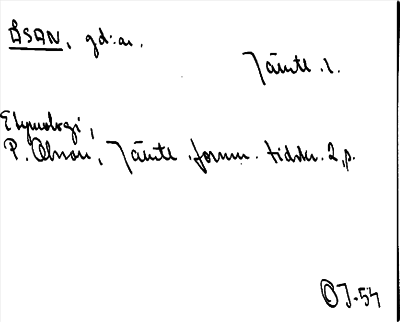 ÅSAN, gd:ar.
Jämtl. l.
Etymologi,
P. Olsson, Jämtl. fornm. tidskr. 2, p.
OJ-54